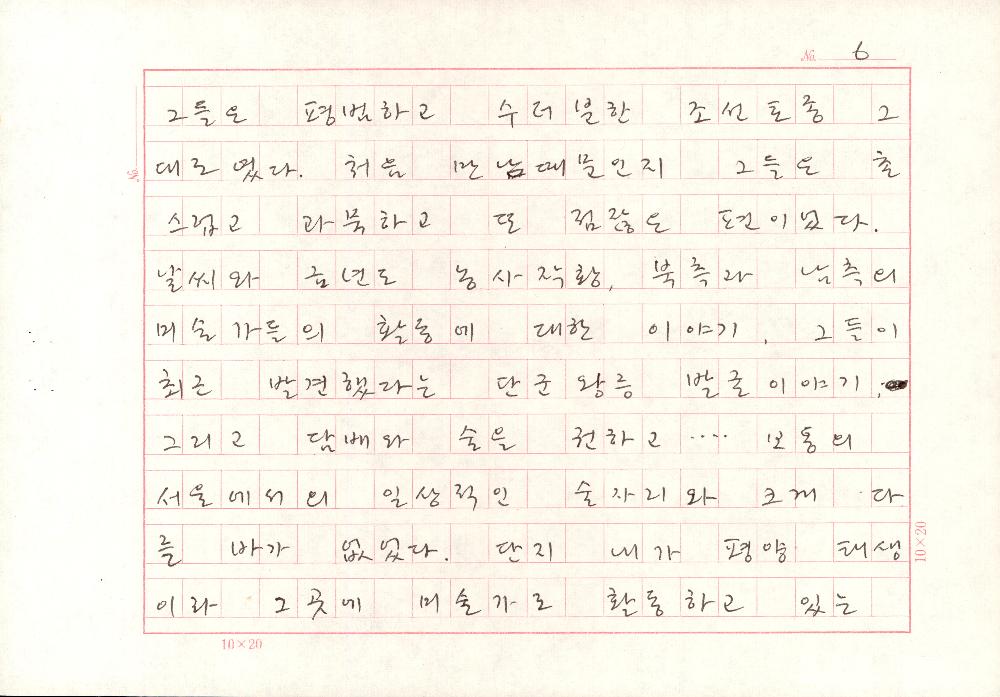 No. 6
No.
그들은 평범하고 수더분한 조선토종 그
대로였다. 처음 만남때문인지 그들은 촌
스럽고 과묵하고 또 점잖은 편이었다.
날씨와 금년도 농사작황, 북측과 남측의
미술가들의 활동에 대한 이야기, 그들이
최근 발견했다라는 단군왕릉 발굴이야기,
그리고 담배와 술을 권하고 ···· 보통의
서울에서의 일상적인 술자리와 크게 다
를 바가 없었다. 단지 내가 평양 태생
이라 그곳에 미술가로 활동하고 있는
10×20
10×20